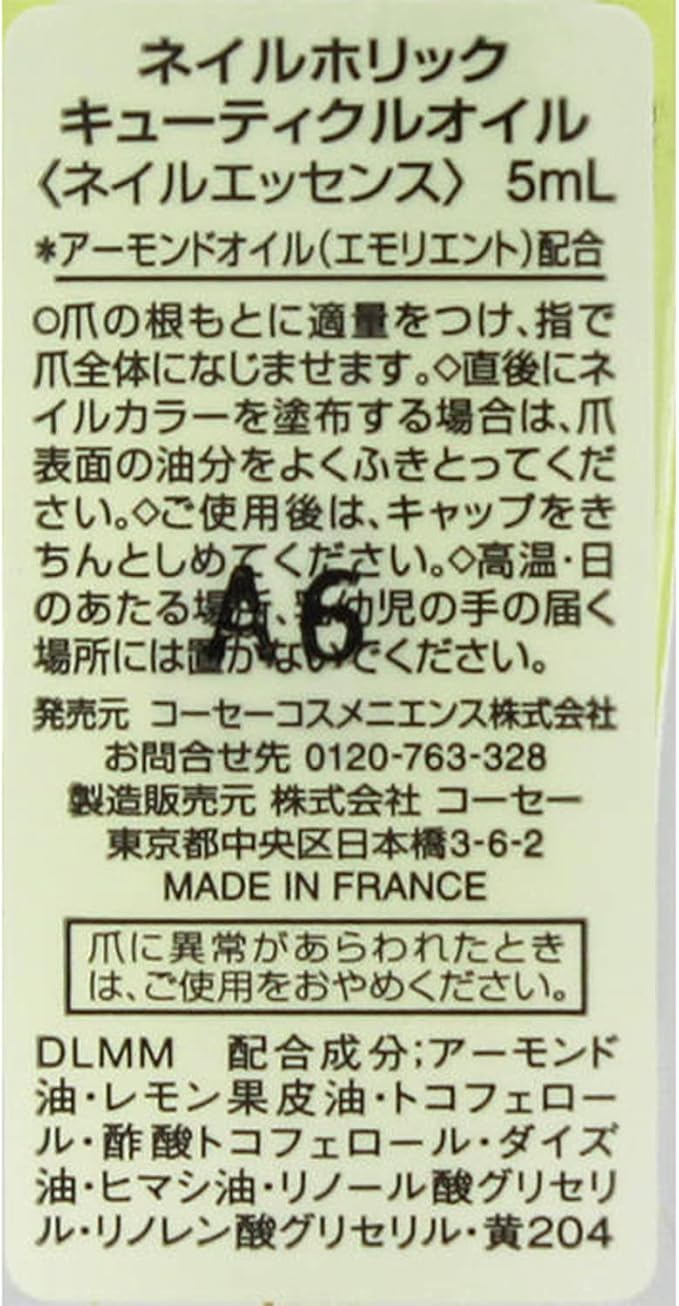 ネイルホリック
キューティクルオイル
〈ネイルエッセンス〉 5mL
*アーモンドオイル(エモリエント)配合
○爪の根もとに適量をつけ、指で
爪全体になじませます。◇直後にネ
イルカラーを塗布する場合は、爪
表面の油分をよくふきとってくだ
さい。◇ご使用後は、キャップをき
ちんとしめてください。◇高温・日
のあたる場所、乳幼児の手の届く
場所には置かないでください。
A6
発売元 コーセーコスメニエンス株式会社
お問合せ先 0120-763-328
製造販売元 株式会社 コーセー
東京都中央区日本橋3-6-2
MADE IN FRANCE
爪に異常があらわれたとき
は、ご使用をおやめください。
DLMM 配合成分;アーモンド
油・レモン果皮油・トコフェロー
ル・酢酸トコフェロール・ダイズ
油・ヒマシ油・リノール酸グリセリ
ル・リノレン酸グリセリル・黄204